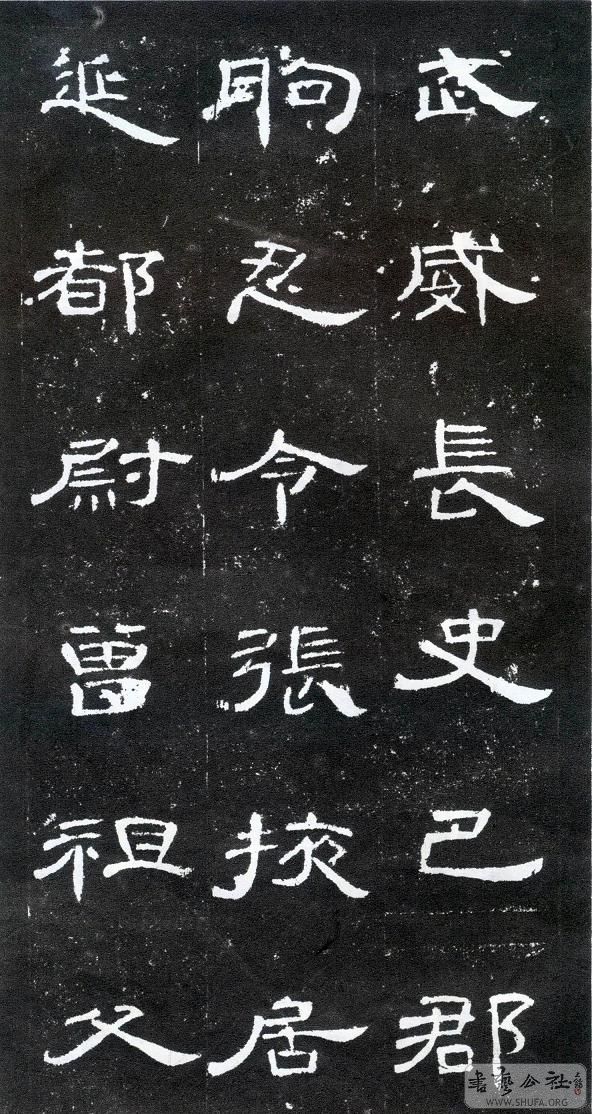 武威長史巴郡
朐忍令張掖居
延都尉曾祖父
書藝公社
WWW.SHUFA.ORG